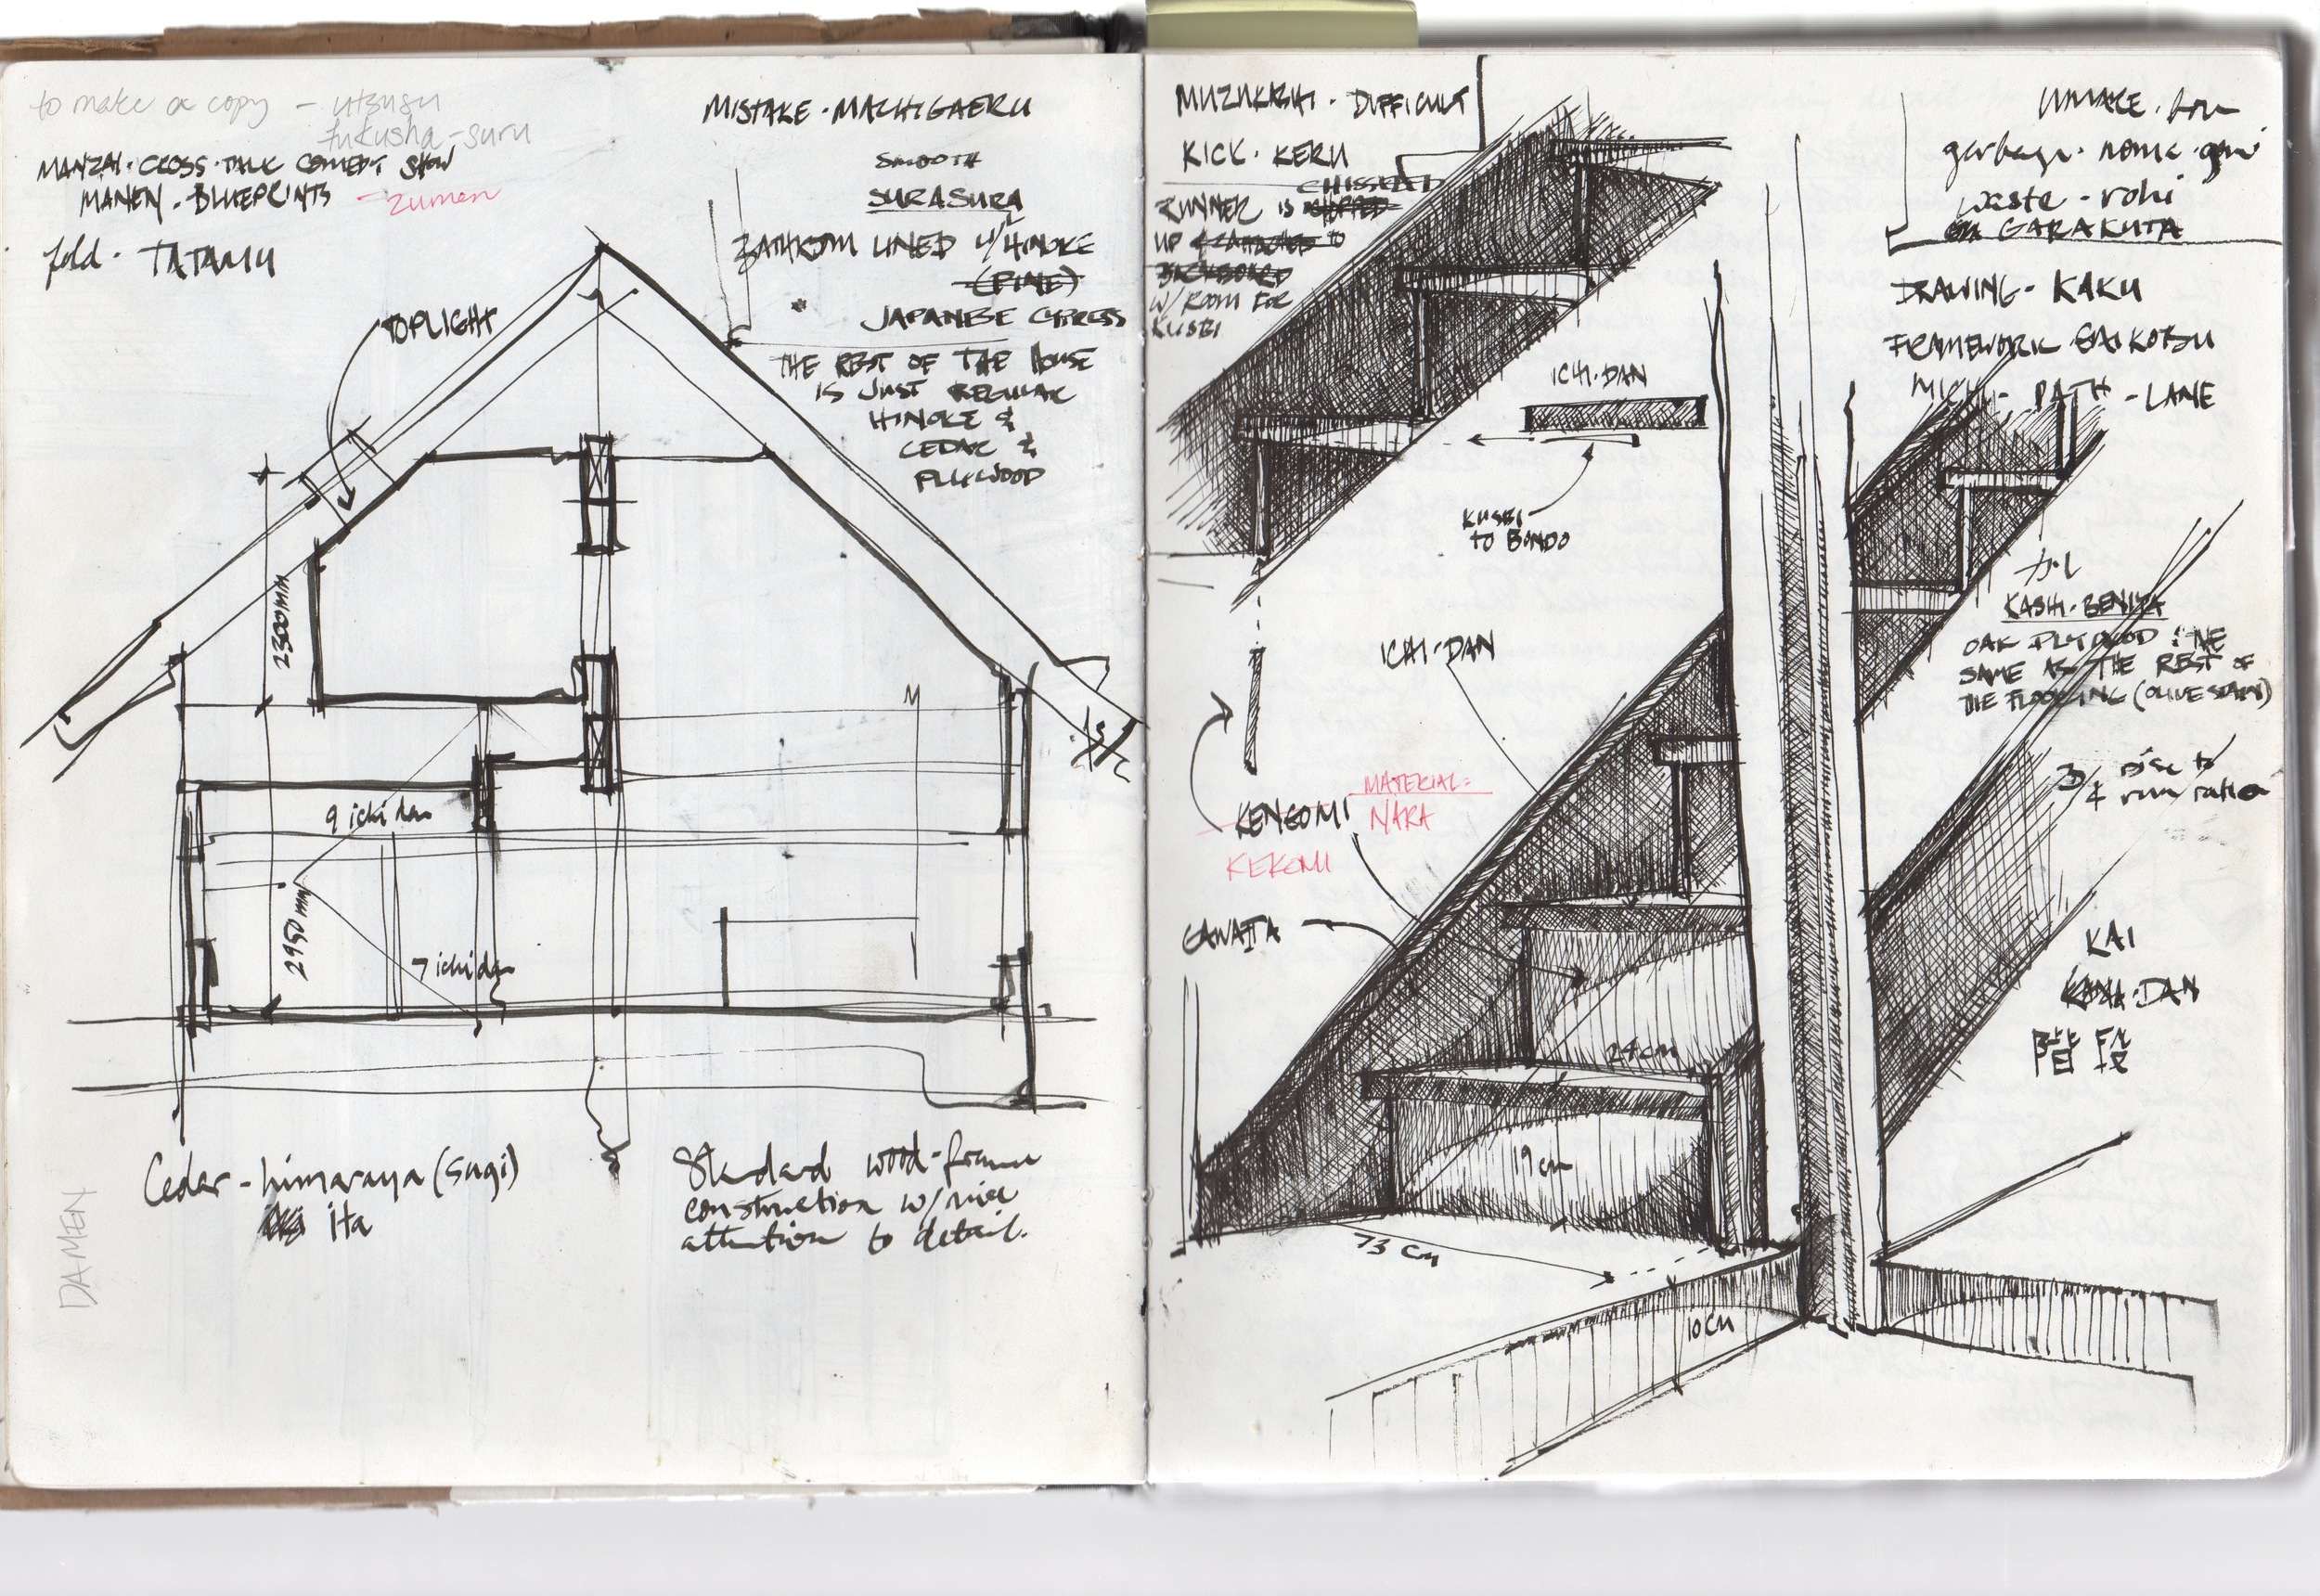 to make a copy - utsusu
fukusha-suru
MANZAI. CROSS. TALK COMEDY SHOW
MANEN. BLUEPRINTS - zumen
fold. TATAMU
TOPLIGHT
MISTAKE. MACHIGAERU
SMOOTH
SURASURA
BATHROOM LINED W/ HINOKE
(PINE)
JAPANESE CYPRESS
THE REST OF THE HOUSE
IS JUST REGULAR
HINOKE &
CEDAR &
PLYWOOD
2300mm
9 ichi dan
2950 mm
7 ichi dan
Cedar - himaraya (sugi)
ita
Standard wood-frame
construction w/ nice
attention to detail.
DAMEN
MUZUKASHI. DIFFICULT
KICK. KERU
CHISSELED
RUNNER IS CHOPPED
UP & ATTACHED TO
BACKBOARD
W/ ROOM FOR
KUSBI
ICHI-DAN
KUSBI
TO BONDO
ICHI-DAN
KENGOMI
MATERIAL:
NARA
KEKOMI
GAWAITA
24 cm
19 cm
73 cm
10 cm
garbage. noma. gomi
waste - rohi
GARAKUTA
DRAWING - KAKU
FRAMEWORK. SAIKOTSU
MICHI - PATH - LANE
カシ
KASHI. BENIYA
OAK PLYWOOD THE
SAME AS THE REST OF
THE FLOORING (OLIVE STAIN)
3/4 rise to
run ratio
KAI
DAN
階段